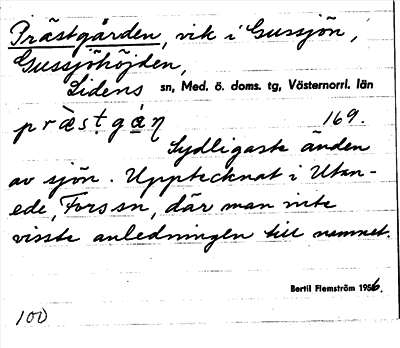 Prästgården, vik i Gussjön,
Gussjöhöjden,
Lidens sn, Med. ö. doms. tg, Västernorrl. län
præ̀s̩t gá̩ɳ 169.
Sydligaste änden
av sjön. Upptecknat i Utan-
ede, Fors sn, där man inte
visste anledningen till namnet.
Bertil Flemström 1956.
100